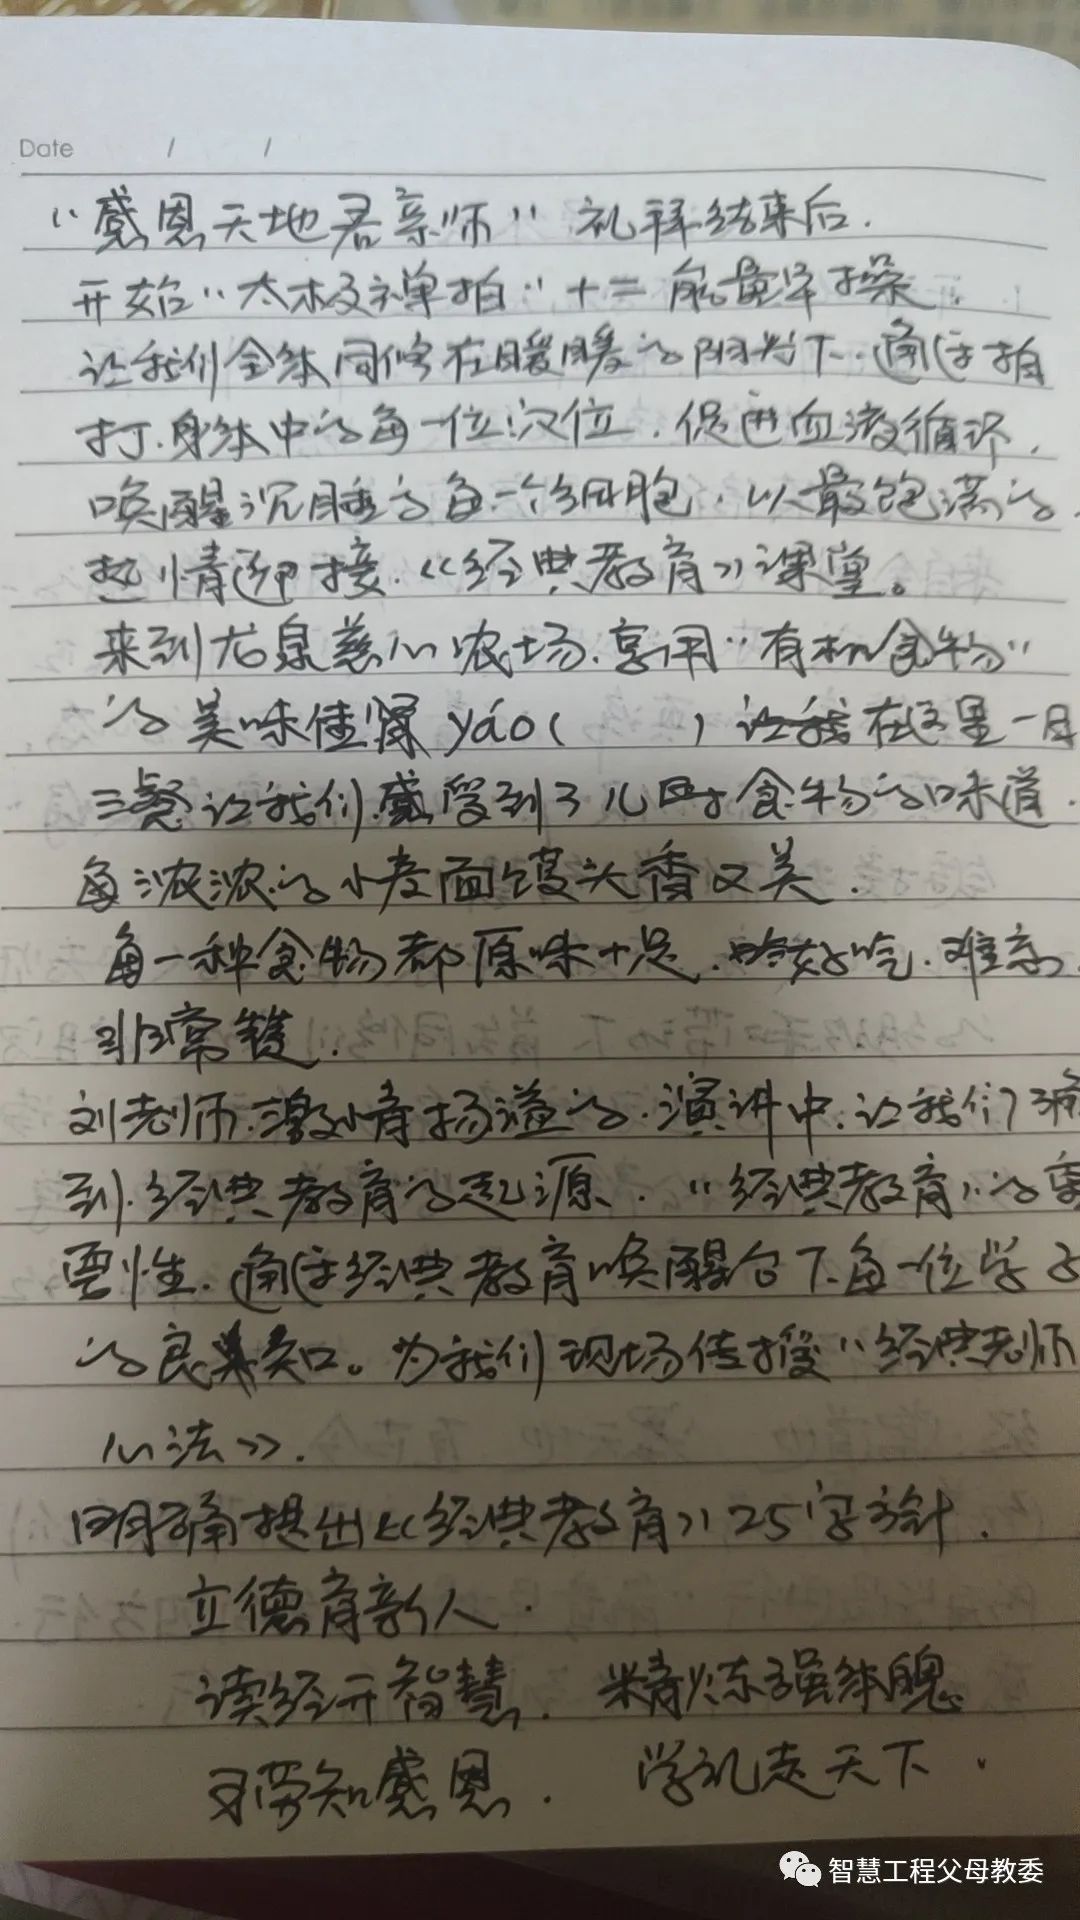 Date / /
“感恩天地君亲师”礼拜结束后.
开始“太极禅拍”十二能量早操,
让我们全体同修在暖暖的阳光下.通过拍
打.身体中的每一位穴位.促进血液循环,
唤醒沉睡的每一个细胞,以最饱满的
热情迎接.《经典教育》课堂。
来到龙泉慈心农场.享用“有机食物”
的美味佳 yáo( ) 在这里一日
三餐让我们.感受到了儿时食物的味道.
每浓浓的小麦面馍头香又美.
每一种食物都原味十足.好吃.难忘,
非常赞.
刘老师.激情扬溢的.演讲中.让我们了确
到.经典教育的起源.“经典教育”的重
要性.通过经典教育唤醒台下每一位学子
的良知。为我们现场传授“经典老师
心法》.
明确提出《经典教育》25字方针.
立德育新人.
读经开智慧. 精炼强体魄
习劳知感恩. 学礼走天下.
智慧工程父母教委